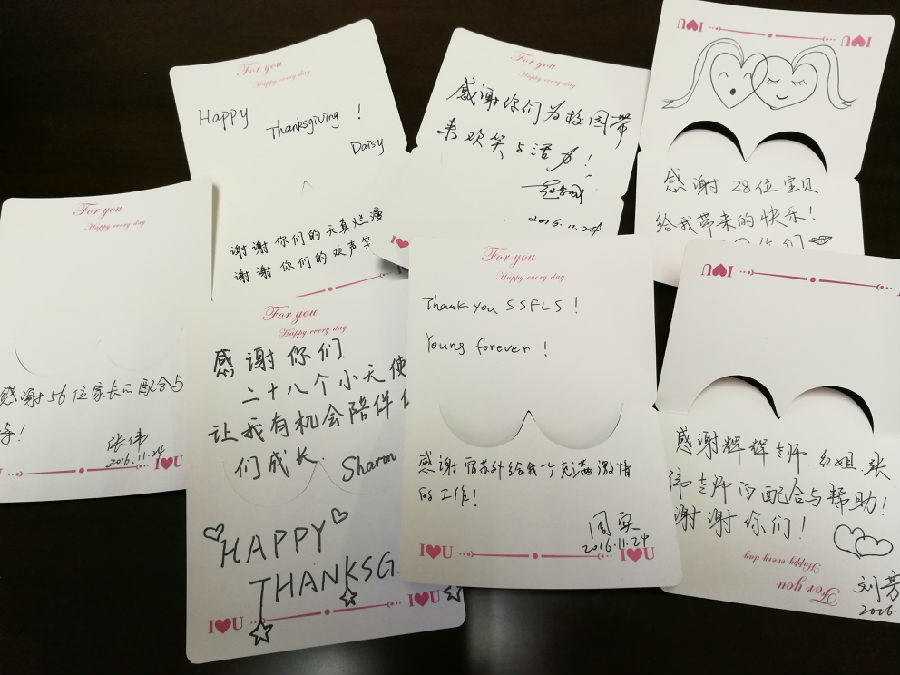 For you
Happy every day
Happy
Thanksgiving !
Daisy
谢谢你们的天真烂漫
谢谢你们的欢声笑
I❤U
For you
Happy every day
感谢你们为校园带
来欢笑与活力!
2016.11.24
I❤U
I❤U
感谢28位宝贝
给我带来的快乐!
你们
For you
Happy every day
感谢56位家长的配合与
等!
张伟
2016.11.24
I❤U
For you
Happy every day
感谢你们
二十八个小天使
让我有机会陪伴
们成长.
Sharon
HAPPY
THANKSG
I❤U
For you
Happy every day
Thank you SSFLS !
Young forever !
感谢宿苏外给我一个充满激情
的工作!
周
2016.11.24
I❤U
I❤U
I❤U
感谢辉辉老师 姐、张
伟老师的配合与帮助!
谢谢你们!
刘芳
2016
Happy every day
For you